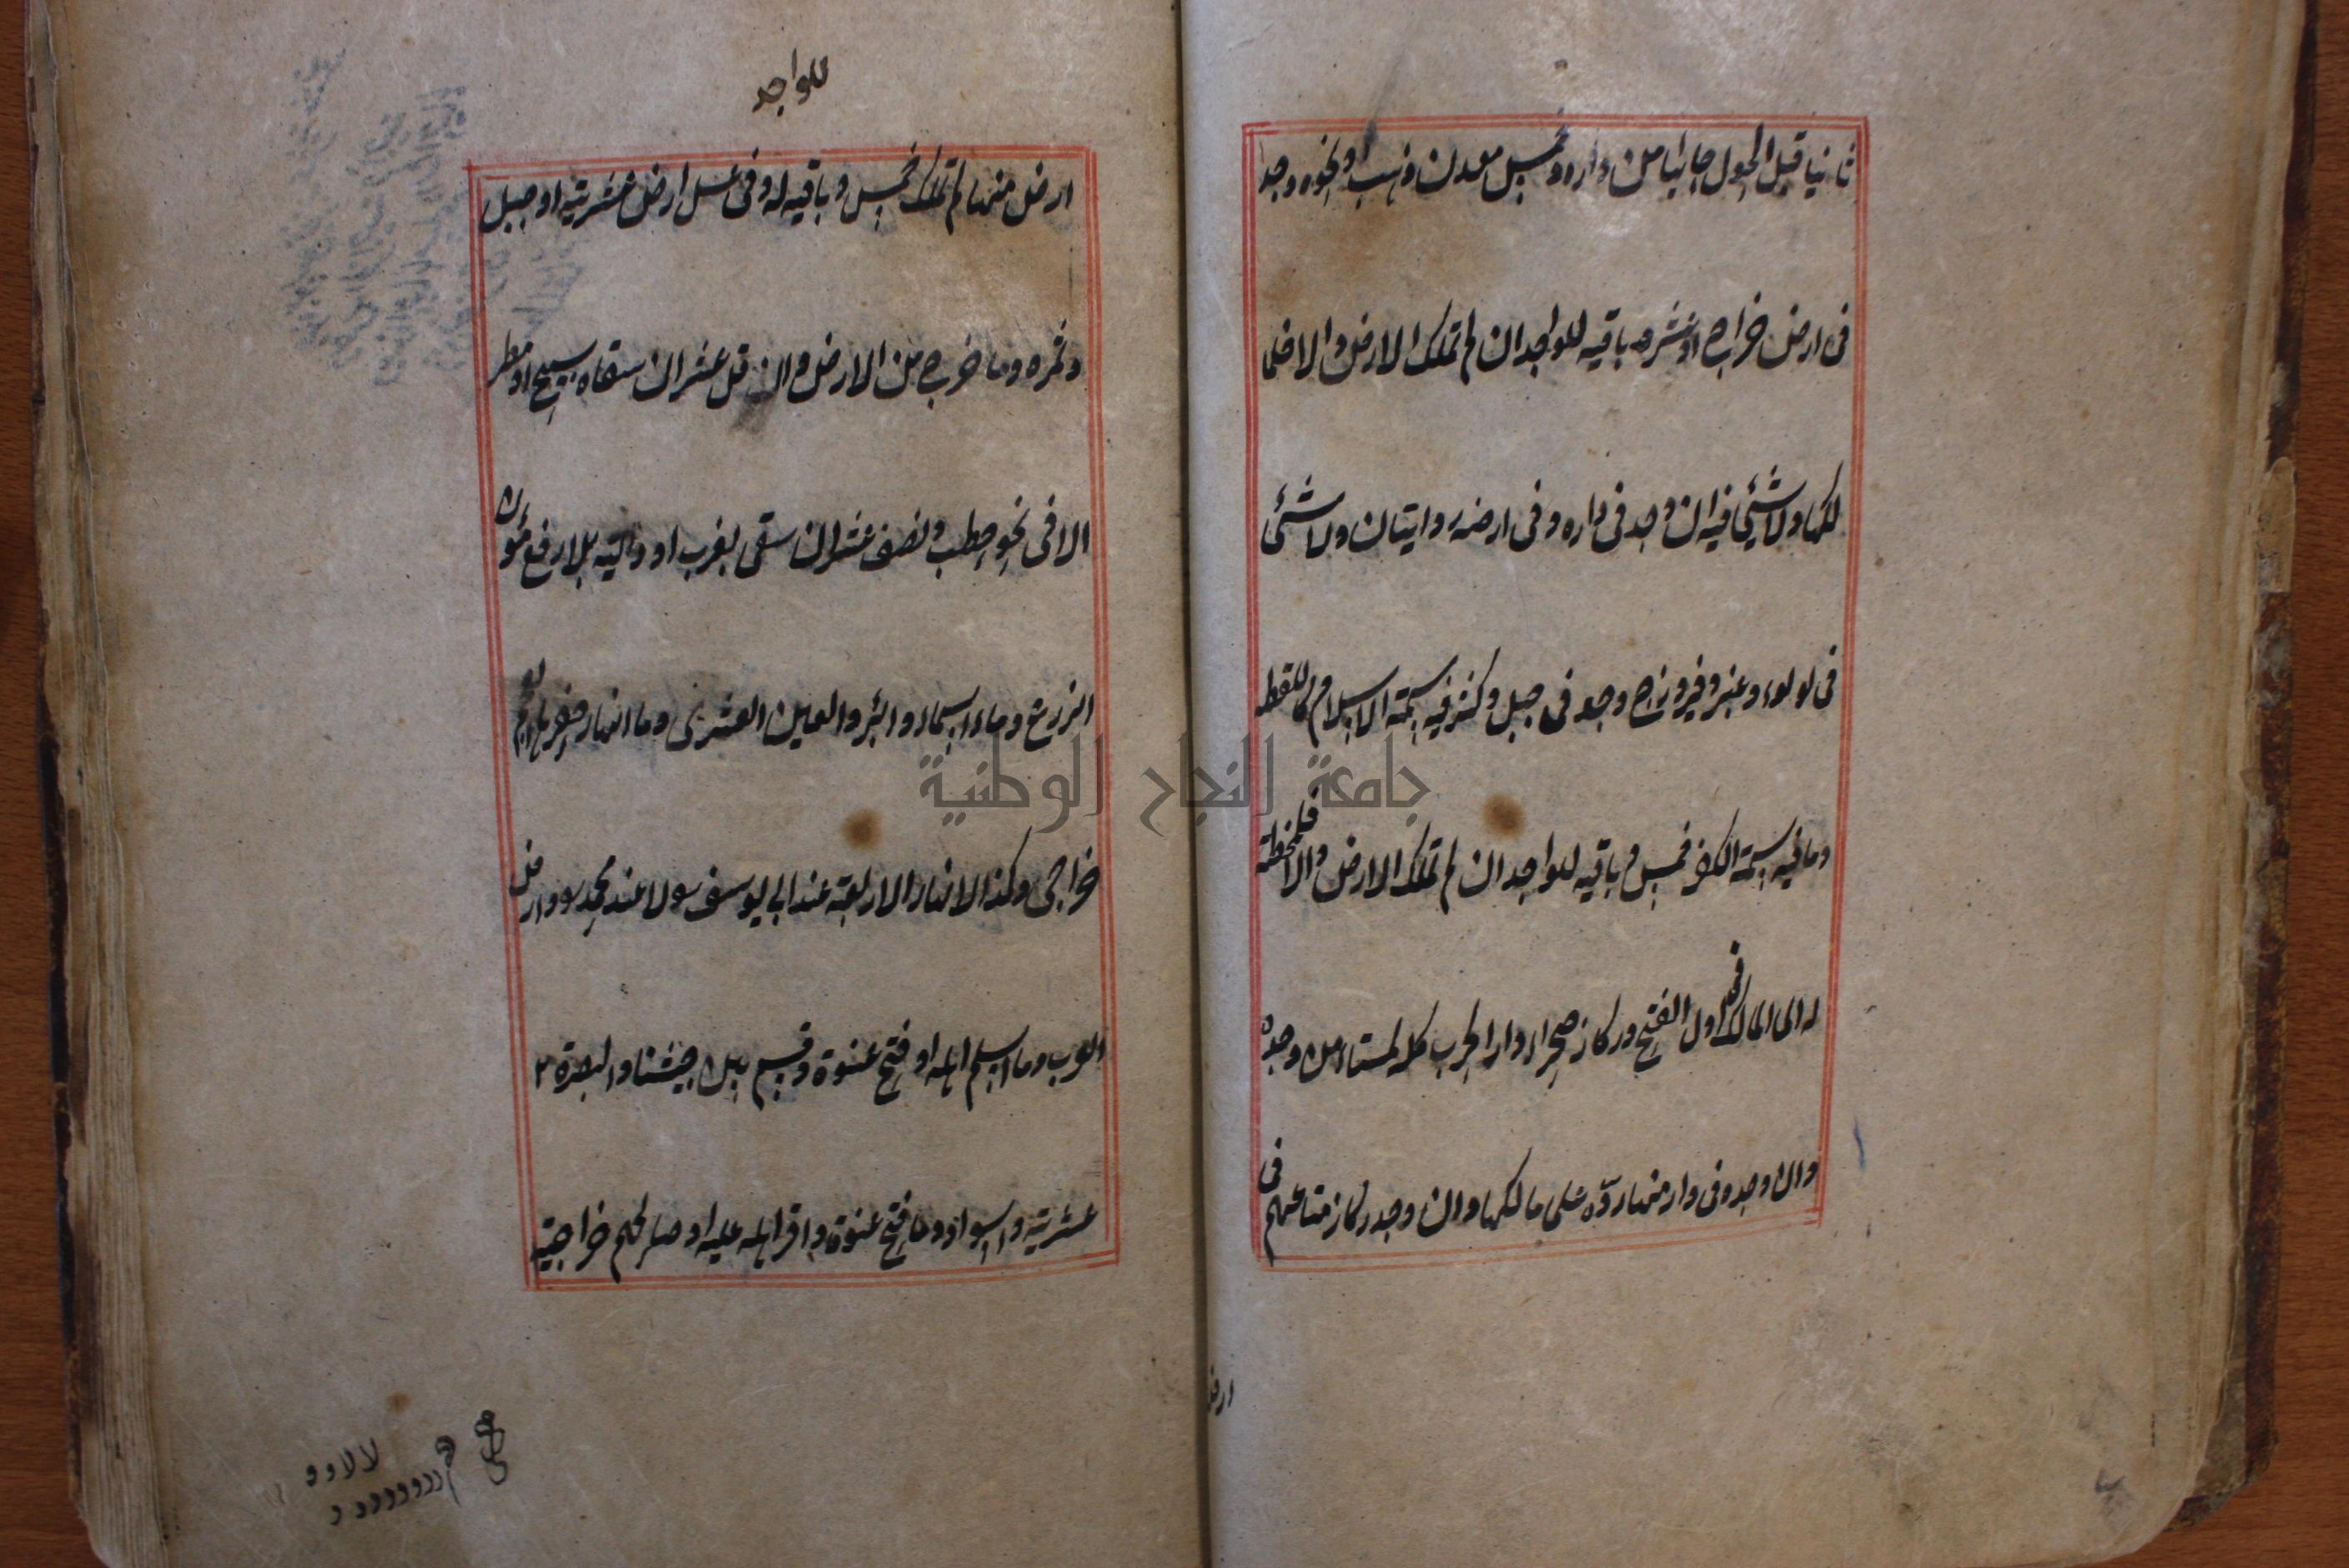 ثانيا قبل الحول جائيا من داره وخمس معدن ذهب او نحوه وجد
فى ارض خراج او عشر وباقيه للواجد ان لم تملك الارض والا فلما
لكها ولا شيئ فيه ان وجد فى داره وفى ارضه روايتان ولا شئ
فى لولوء وعنبر وفيروزج وجد فى جبل وكنز فيه سمة الاسلام كاللقطة
وما فيه سمة الكفر خمس وباقيه للواجد ان لم تملك الارض والا فللمختط
له اى المالك اول الفتح وركاز صحراء دار الحرب كله لمستامن وجده
وان وجد فى دار منها رده على مالكها وان وجد ركاز متاعهم فى
ارض
للواجد
ارض منها لم تملك خمس وباقيه له وفى عسل ارض عشرية او جبل
وثمره وما خرج من الارض وان قل عشر ان سقاه سيح او مطر
الا فى نحو حطب ونصف عشر ان سقى بغرب او دالية بلا رفع مؤن
الزرع وماء السماء والبئر والعين العشرى وما انهار حفرها
خراجى وكذا الانهار الاربعة عند ابى يوسف لا عند محمد وارض
العرب وما اسلم اهله او فتح عنوة وقسم بين جيشنا والبصرة
عشرية والسواد وما فتح عنوة واقر اهله عليه او صالحهم خراجية
جامعة النجاح الوطنية